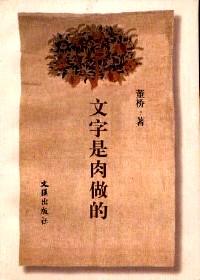 董桥·著
文字是肉做的
文汇出版社